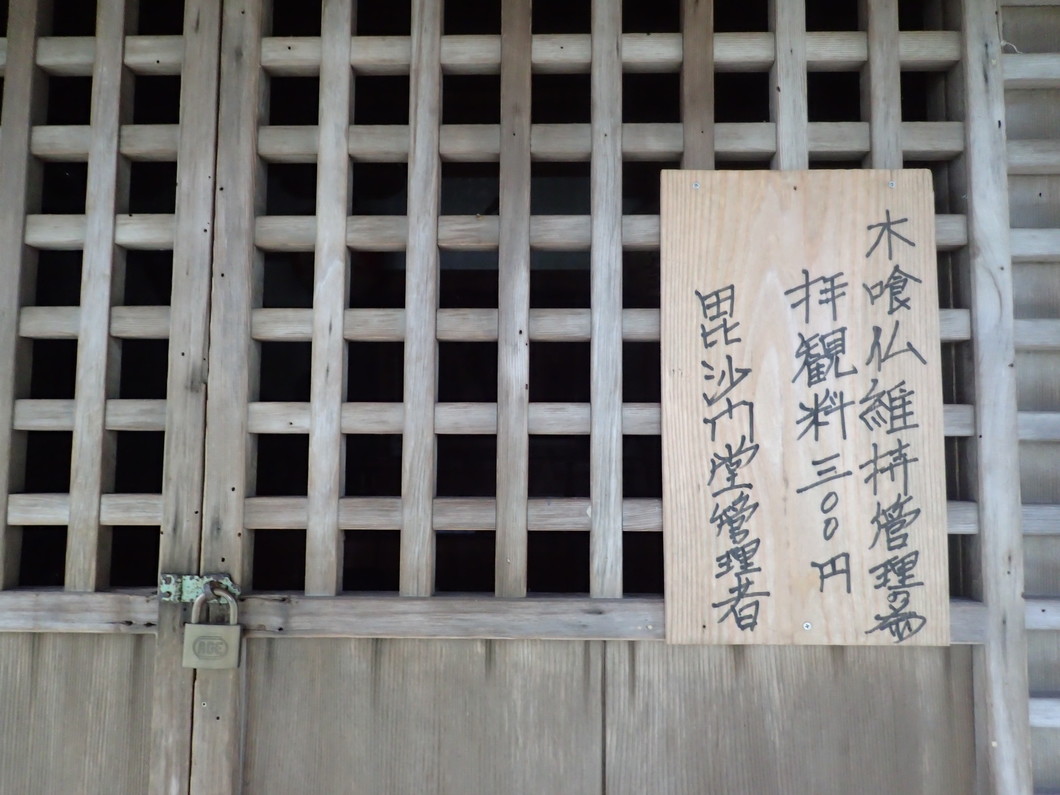 木喰仏維持管理の為
拝観料三〇〇円
毘沙門堂管理者